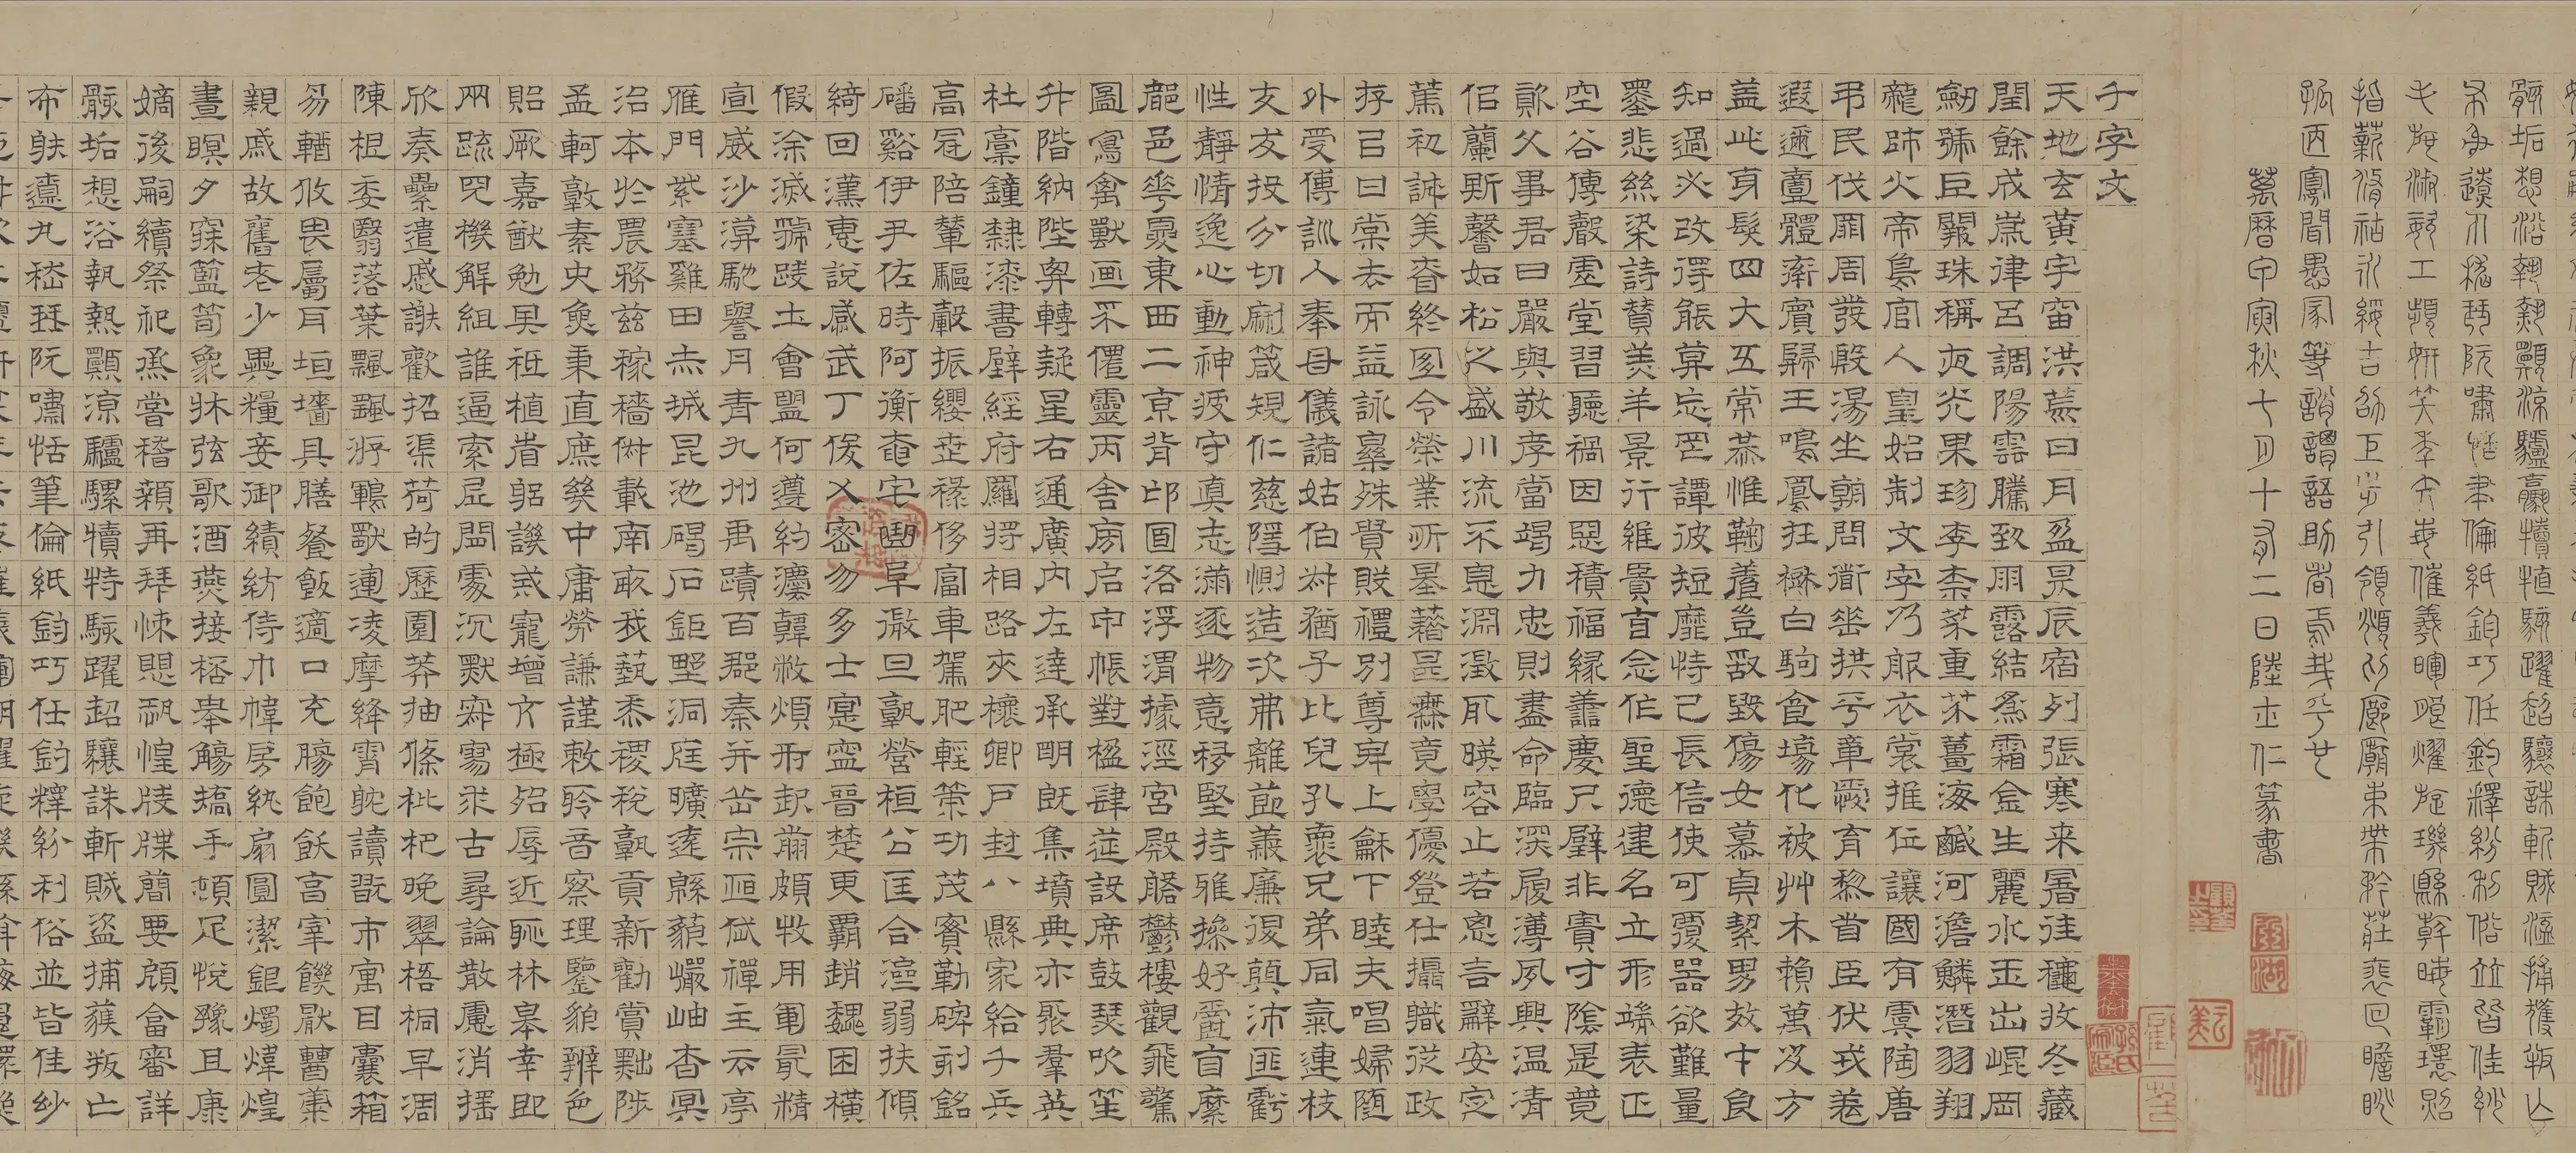 骸垢想浴執熱願涼驢騾犢特駭躍超驤誅斬賊盜捕獲叛亡
布射遼丸嵇琴阮嘯恬筆倫紙鈞巧任釣釋紛利俗並皆佳妙
毛施淑姿工顰妍笑年矢每催羲暉朗燿旋璣懸斡晦魄環照
指薪脩祜永綏吉劭矩步引領頫仰廊廟束帶矜莊裵回瞻眺
孤陋寡聞愚蒙等誚謂語助者焉哉乎也
萬曆甲寅秋七月十有二日陸士仁篆書
千字文
天地玄黃宇宙洪荒日月盈昃辰宿列張寒来暑往穐收冬藏
閏餘成歲律呂調陽雲騰致雨露結為霜金生麗水玉出崐岡
劒號巨闕珠稱夜光果珍李柰菜重芥薑海鹹河澹鱗潛羽翔
龍師火帝鳥官人皇始制文字乃服衣裳推位讓國有虞陶唐
弔民伐罪周發殷湯坐朝問衜垂拱平章愛育黎首臣伏戎羌
遐邇壹體率賓歸王鳴鳳在樹白駒食場化被艸木賴萬及方
蓋此身髮四大五常恭惟鞠養豈敢毀傷女慕貞絜男效才良
知過必改得能莫忘罔譚彼短靡恃己長信使可覆器欲難量
墨悲絲染詩贊羔羊景行維賢克念作聖德建名立形端表正
空谷傳聲虛堂習聽禍因惡積福緣善慶尺璧非寶寸陰是競
資父事君曰嚴與敬孝當竭力忠則盡命臨深履薄夙興温凊
佀蘭斯馨如松之盛川流不息淵澂取映容止若思言辭安定
篤初誠美昚終宜令榮業所基藉甚無竟學優登仕攝職從政
存㠯甘棠去而益詠樂殊貴賤禮別尊卑上龢下睦夫唱婦随
外受傅訓入奉母儀諸姑伯叔猶子比兒孔褱兄弟同氣連枝
友交投分切劘箴規仁慈隱惻造次弗離節義廉退顛沛匪虧
性靜情逸心動神疲守真志滿逐物意移堅持雅操好爵自縻
都邑華夏東西二京背邙面洛浮渭據涇宮殿盤鬱樓觀飛驚
圖寫禽獸画采僊靈丙舍旁启甲帳對楹肆筵設席鼓瑟吹笙
升階納陛弁轉疑星右通廣内左達承明既集墳典亦聚羣英
杜稾鐘隸漆書壁經府羅將相路夾槐卿戶封八縣家給千兵
高冠陪輦驅轂振纓世祿侈富車駕肥輕策功茂實勒碑刻銘
磻谿伊尹佐時阿衡奄宅曲阜微旦孰營桓公匡合濟弱扶傾
綺回漢惠說感武丁俊乂密勿多士寔寧晉楚更霸趙魏困橫
假涂滅虢踐土會盟何遵約灋韓弊煩刑起翦頗牧用軍最精
宣威沙漠馳譽丹青九州禹蹟百郡秦并岳宗恒岱禪主云亭
雁門紫塞雞田赤城昆池碣石鉅野洞庭曠遠緜藐巖岫杳冥
治本於農務茲稼穡俶載南畝我蓺黍稷稅孰貢新勸賞黜陟
孟軻敦素史魚秉直庶幾中庸勞謙謹敕聆音察理鑒貌辨色
貽厥嘉猷勉其祗植省躬譏誡寵增亢極殆辱近恥林皋幸即
兩疏見機解組誰逼索居閒處沉默寂寥求古尋論散慮消搖
欣奏纍遣慼謝歡招渠荷的歷園莽抽條枇杷晚翠梧桐早凋
陳根委翳落葉飄颻游鵾獨運凌摩絳霄耽讀翫市寓目囊箱
易輶攸畏屬耳垣墻具膳餐飯適口充腸飽飫亯宰饑厭糟糠
親戚故舊老少異糧妾御績紡侍巾幃房紈扇圓潔銀燭煒煌
晝瞑夕寐籃筍象牀弦歌酒燕接桮舉觴矯手頓足悅豫且康
嫡後嗣續祭祀烝嘗稽顙再拜悚懼恐惶牋牒簡要顧答審詳
骸垢想浴執熱願涼驢騾犢特駭躍超驤誅斬賊盜捕獲叛亡
布射遼丸嵇琴阮嘯恬筆倫紙鈞巧任釣釋紛利俗並皆佳妙